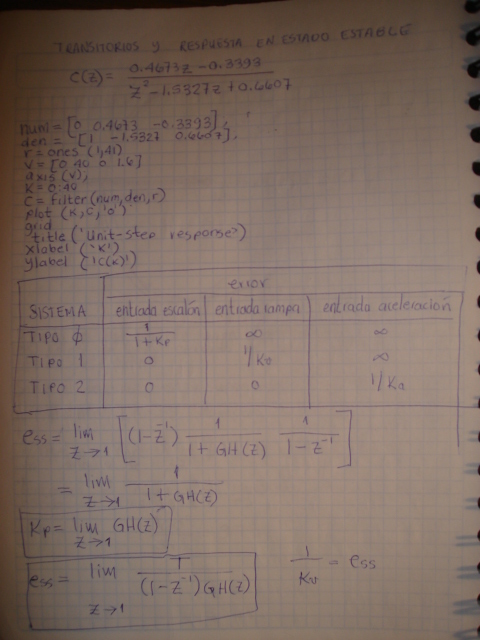 TRANSITORIOS Y RESPUESTA EN ESTADO ESTABLE
C(z) = (0.4673z - 0.3393) / (z² - 1.5327z + 0.6607)
num = [0 0.4673 -0.3393];
den = [1 -1.5327 0.6607];
r = ones (1,41)
v = [0 40 0 1.6]
axis (v);
K = 0:40
C = filter(num,den,r)
plot (K,C,'o')
grid
title ('Unit-step response')
xlabel ('K')
ylabel ('C(K)')
error
SISTEMA entrada escalón entrada rampa entrada aceleración
TIPO 0 1/(1+Kp) ∞ ∞
TIPO 1 0 1/Kv ∞
TIPO 2 0 0 1/Ka
ess = lim z→1 [(1-z⁻¹) 1/(1+GH(z)) 1/(1-z⁻¹)]
= lim z→1 1/(1+GH(z))
Kp = lim z→1 GH(z)
ess = lim z→1 T/((1-z⁻¹)GH(z)) 1/Kv = ess